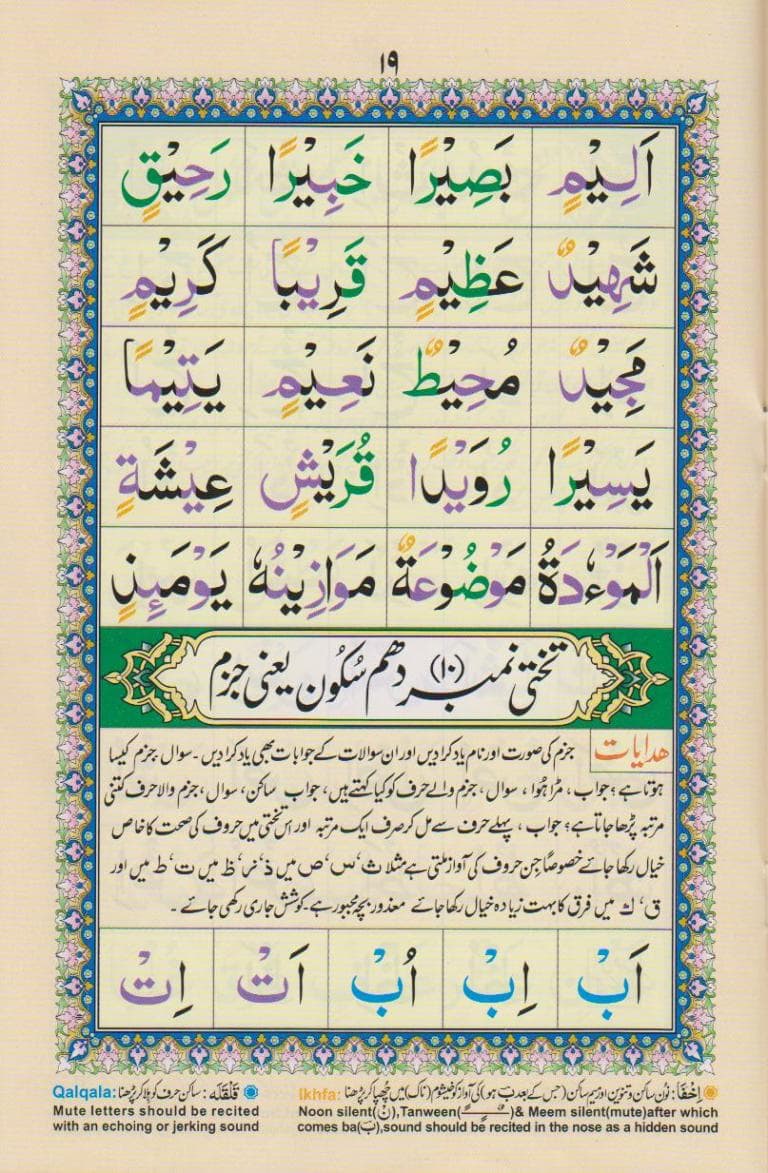 ١٩
اَلِيْمٍ بَصِيْرًا خَبِيْرًا رَحِيْقٍ
شَهِيْدٌ عَظِيْمٍ قَرِيْبًا كَرِيْمٍ
مَجِيْدٌ مُحِيْطٌ نَعِيْمٍ يَتِيْمًا
يَسِيْرًا رُوَيْدًا قُرَيْشٍ عِيْشَةٍ
اَلْمَوْءٗدَةُ مَوْضُوْعَةٌ مَوَازِيْنُهٗ يَوْمَئِذٍ
تختی نمبر (١٠) دھم سُکُون یعنی جزم
ھدایات جزم کی صورت اور نام یاد کرا دیں اور ان سوالات کے جوابات بھی یاد کرا دیں ۔ سوال ، جزم کیسا
ہوتا ہے ؟ جواب ، مڑا ہُوا ، سوال ، جزم والے حرف کو کیا کہتے ہیں ، جواب ساکن ، سوال ، جزم والا حرف کتنی
مرتبہ پڑھا جاتا ہے ؟ جواب ، پہلے حرف سے مل کر صرف ایک مرتبہ اور اس تختی میں حروف کی صحت کا خاص
خیال رکھا جائے خصوصاً جن حروف کی آواز ملتی ہے مثلا ث ، س ، ص میں ذ ، ز ، ظ میں ت ، ط میں اور
ق ، ك میں فرق کا بہت زیادہ خیال رکھا جائے معذور بچہ مجبور ہے ۔ کوشش جاری رکھی جائے ۔
اَبْ اِبْ اُبْ اَتْ اِتْ
اِخْفَا : نون ساکن و تنوین اور میم ساکن (جس کے بعد بَ ہو) کی آواز کو خیشوم (ناک) میں چُھپا کر پڑھنا Ikhfa:
Noon silent(نْ),Tanween(ـًـٍـٌ)& Meem silent(mute)after which
comes ba(بَ),sound should be recited in the nose as a hidden sound
قَلْقَلَه : ساکن حرف کو ہلا کر پڑھنا Qalqala:
Mute letters should be recited
with an echoing or jerking sound